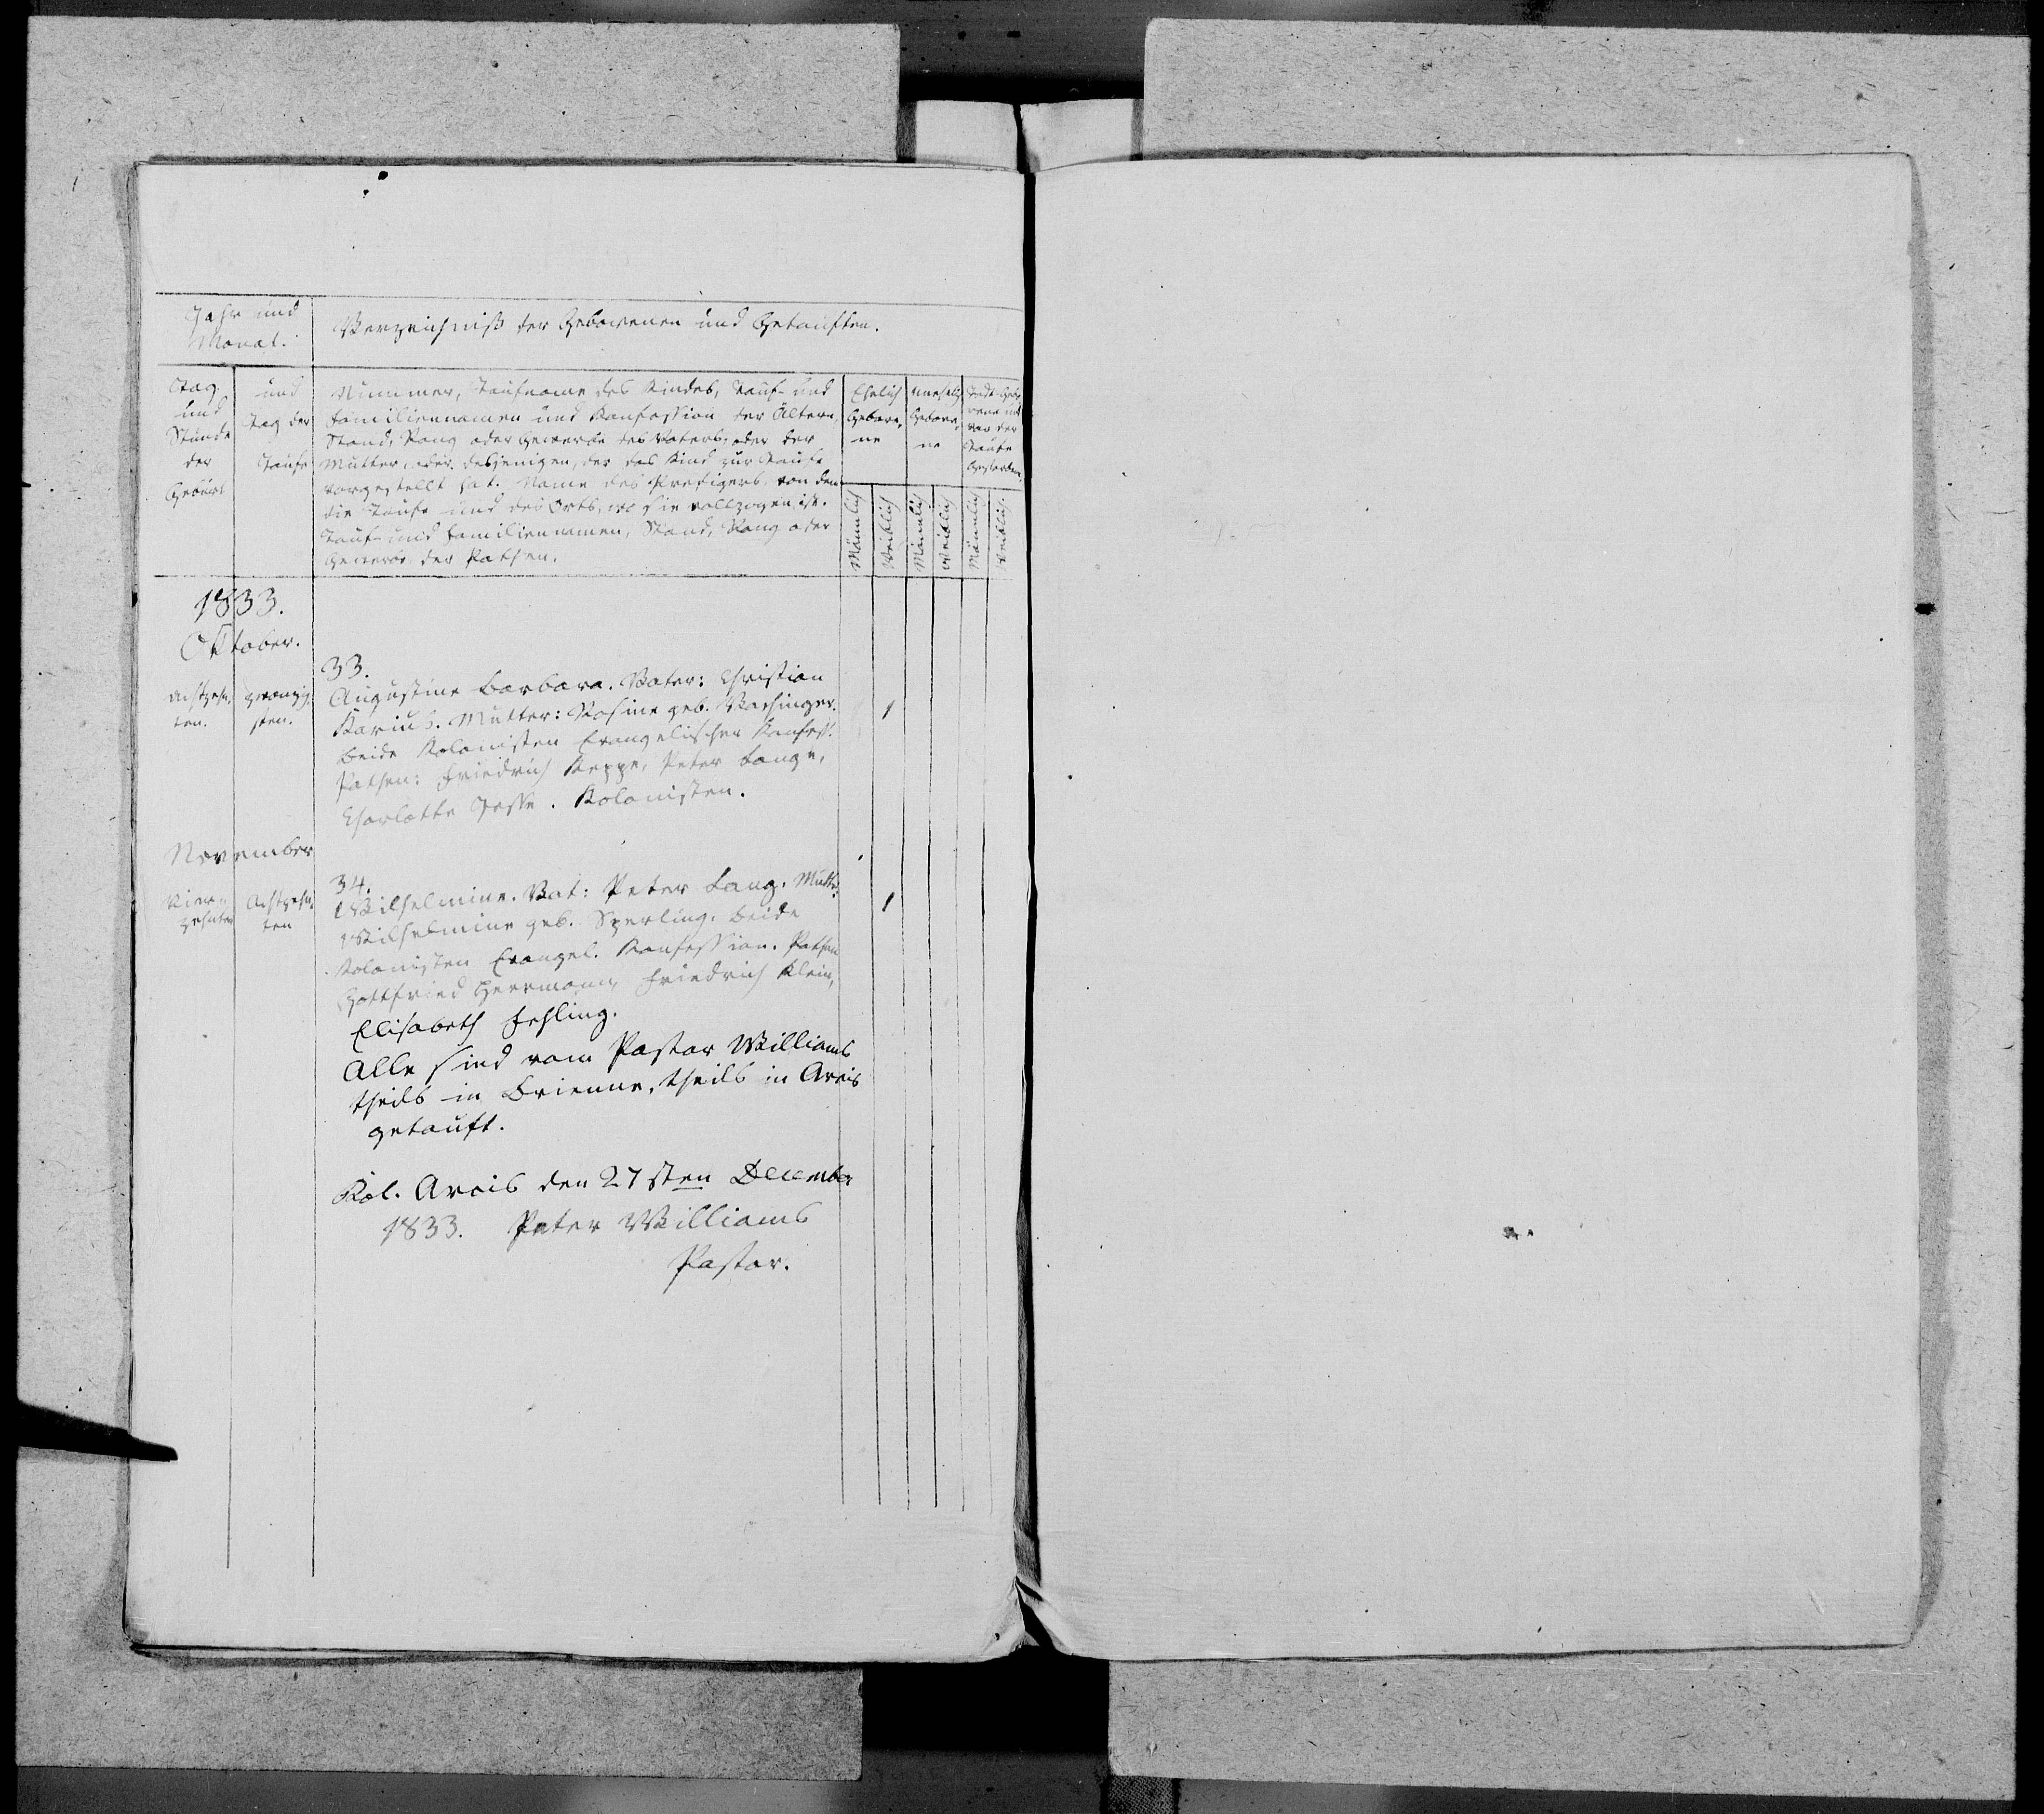 Jahr und
Monat.
Verzeichniß der Gebornen und Getauften.
Tag
und
Stunde
der
Geburt
und
Tag der
Taufe
Nummer, Taufname des Kindes, Tauf- und
Familiennamen und Konfession der Ältern,
Stand, Rang oder Gewerbe des Vaters, oder der
Mutter, oder desjenigen, der das Kind zur Taufe
vorgestellt hat. Name des Predigers, von dem
die Taufe und des Orts, wo sie vollzogen ist.
Tauf- und Familiennamen, Stand, Rang oder
Gewerbe der Pathen.
Ehelich
Gebore-
ne
Unehelich
Gebore-
ne
vor der
Taufe
Männlich
Weiblich
Männlich
Weiblich
Männlich
Weiblich.
1833.
Oktober.
33.
Achtzehn-
ten.
zwanzig-
sten.
Augustine Barbara. Vater: Christian
Karius. Mutter: Rosine geb. Bärsinger.
beide Kolonisten Evangelischer Konfess.
Pathen: Friedrich Keppe, Peter Lange,
Charlotte Jesse. Kolonisten.
1
November
34.
Vier-
zehnten
Achtzehn-
ten
Wilhelmine. Vat: Peter Lang. Mutter:
Wilhelmine geb. Sperling. beide
Kolonisten Evangel. Konfession. Pathen
Gottfried Herrmann, Friedrich Klein,
Elisabeth Fehling.
1
Alle sind vom Pastor Williams
theils in Brienne, theils in Arcis
getauft.
Kol. Arcis den 27sten December
1833. Peter Williams
Pastor.